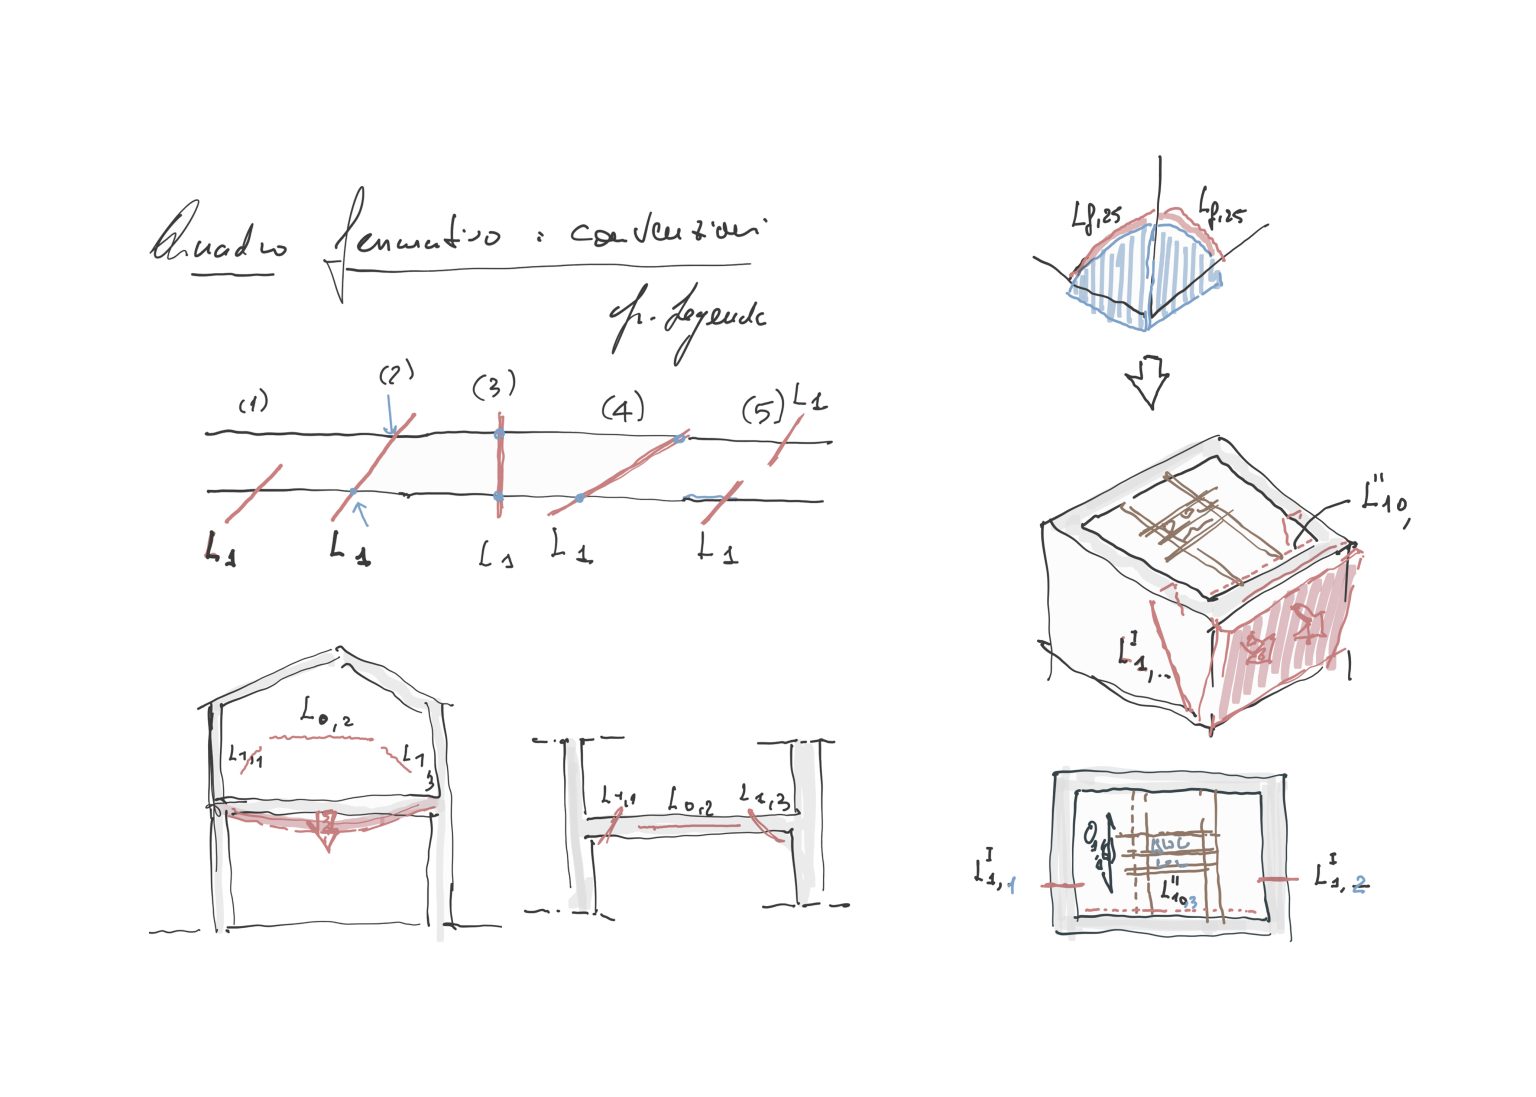 Quadro fessurativo : convenzioni
cfr. Legenda
(1)
(2)
(3)
(4)
(5)
L1
L1
L1
L1
L1
L1
L0,2
L1,1
L1,3
L1,1
L0,2
L1,3
Lf,25
Lf,25
L"10,
LI1,..
LI1,1
L"10,3
LI1,2